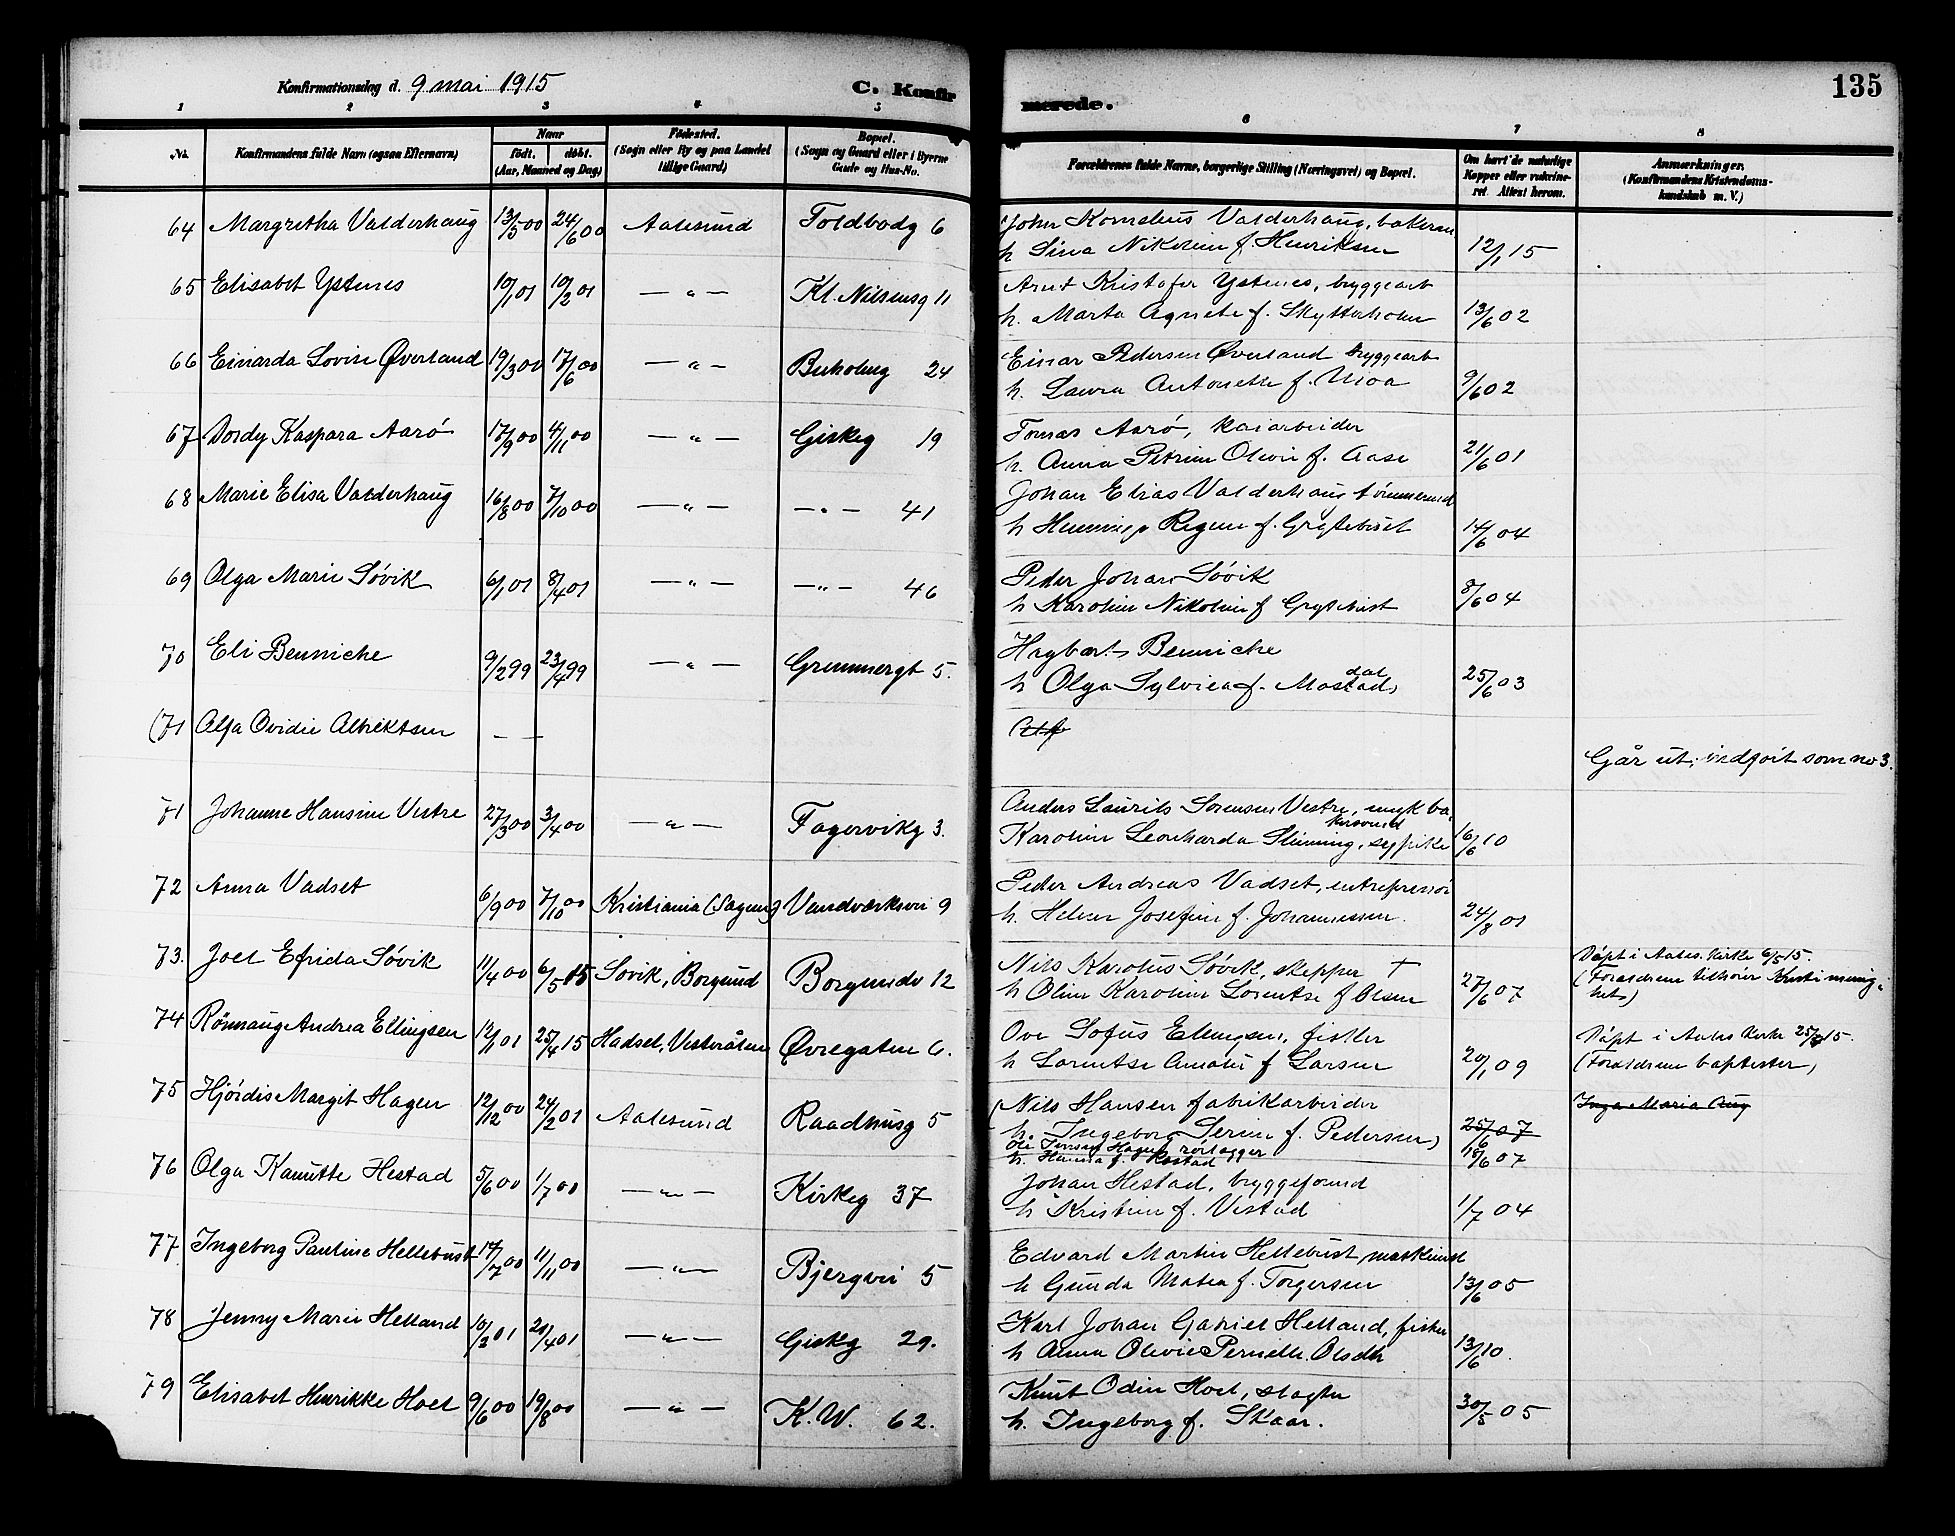 Konfirmationsdag d. 9 mai 1915
C. Konfirmerede.
135
1 2 3 4 5 6 7 8
No.
Konfirmandens fulde Navn (ogsaa Efternavn)
Naar
født. døbt.
(Aar, Maaned og Dag)
Fødested.
(Sogn eller By og paa Landet
tillige Gaard)
Bopæl.
(Sogn og Gaard eller i Byerne
Gade og Hus-No.
Forældrenes fulde Navne, borgerlige Stilling (Næringsvei) og Bopæl.
Om havt de naturlige
Kopper eller vakcineret.
Attest herom.
Anmærkninger,
(Konfirmandens Kristendomskundskab
m. V.)
64 Margretha Valderhaug 13/5 00 24/6 00 Aalesund Toldbodg 6 John Kornelius Valderhaug, bakersv
h Sina Nikoline f. Henriksen 12/1 15
65 Elisabet Ystenes 10/1 01 10/2 01 — " — Kl. Nilsensg 11 Arnt Kristofer Ystenes, bryggearb
h. Marta Agnete f. Skytterholm 13/6 02
66 Einarda Lovise Øverland 19/3 00 17/6 00 — " — Buholmg 24 Einar Pedersen Øverland bryggearb
h. Laura Antonette f. Moa 9/6 02
67 Dordy Kaspara Aarø 17/9 00 4/11 00 — " — Giskeg 19 Tomas Aarø, kaiarbeider
h. Anna Petrine Olivie f. Aase 21/6 01
68 Marie Elisa Valderhaug 16/8 00 7/10 00 — " — — " — 41 Johan Elias Valderhaug tømmermd
h Henninge Regine f. Grytebust 14/6 04
69 Olga Marie Søvik 6/1 01 8/4 01 — " — — " — 46 Peder Johan Søvik
h Karoline Nikoline f Grytebust 8/6 04
70 Eli Benniche 9/2 99 23/4 99 — " — Grimmergt 5. Hagbart Benniche
h Olga Sylviea f. Mostad dal 25/6 03
(71 Alfa Ovidie Albrektsen — —
Går ut, indført som no 3.
71 Johanne Hansine Vestre 27/3 00 3/4 00 — " — Fagervikg 3. Anders Laurits Sorensen Vestre, ungk ba
kersvend
Karoline Leonharda Slinning, sypike 16/6 10
72 Anna Vadset 6/9 00 7/10 00 Kristiania (Sagene) Vandværksvei 9 Peder Andreas Vadset, entreprenør
h. Helene Josefine f. Johannessen. 24/8 01
73. Joel Efrida Søvik 11/4 00 6/5 15 Søvik, Borgund Borgundv 12 Nils Karolus Søvik, skipper †
h Oline Karoline Lorentse f Olsen 27/6 07 Døpt i Aales. Kirke 6/5 15.
(Forældrene tilhører Kristi menig
het)
74 Rønnaug Andrea Ellingsen 12/1 01 25/4 15 Hadsel, Vesterålen Øvregaten 6. Ove Sofus Ellingsen, fisker
h Lorentse Amalie f Larsen 20/1 09 Døpt i Aales Kirke 25/4 15.
(Forældrene baptister)
75 Hjørdis Margit Hagen 12/12 00 24/2 01 Aalesund Raadhusg 5 (Nils Hansen fabrikarbeider
h. Ingeborg Serine f. Pedersen) 25/6 07 Inga Maria Aug
Hagen rørlægger
h. Hanna f. 18/6 07
76 Olga Kanutte Hestad 5/6 00 1/7 00 — " — Kirkeg 37 Johan Hestad, bryggeformd
h Kristine f. Vestad 1/7 04
77 Ingeborg Pauline Hellebust 14/7 00 11/11 00 — " — Bjergvei 5 Edvard Martin Hellebust maskinist
h Gunda Matea f. Torgersen 13/6 05
78 Jenny Marie Helland 10/2 01 21/4 01 — " — Giskg 29. Karl Johan Gabriel Helland, fisker
h Anna Olivie Pernelle Olsdtr 13/6 10.
79 Elisabet Henrikke Hoel 9/6 00 19/8 00 — " — K.W. 62. Knut Odin Hoel, slagter
h. Ingeborg f. Skaar. 30/5 05